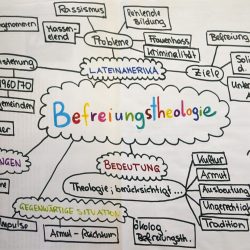 Rassismus
fehlende
Bildung
Massen-
elend
Probleme
Frauenhass
Kriminalität
Befreiung
LATEINAMERIKA
Ziele
1960/70
Befreiungstheologie
BEDEUTUNG
Theologie berücksichtigt ...
Kultur
Armut
Ausbeutung
Tradition
GEGENWÄRTIGE SITUATION
Armut - Reichtum
ökolog.
Befreiungsth.